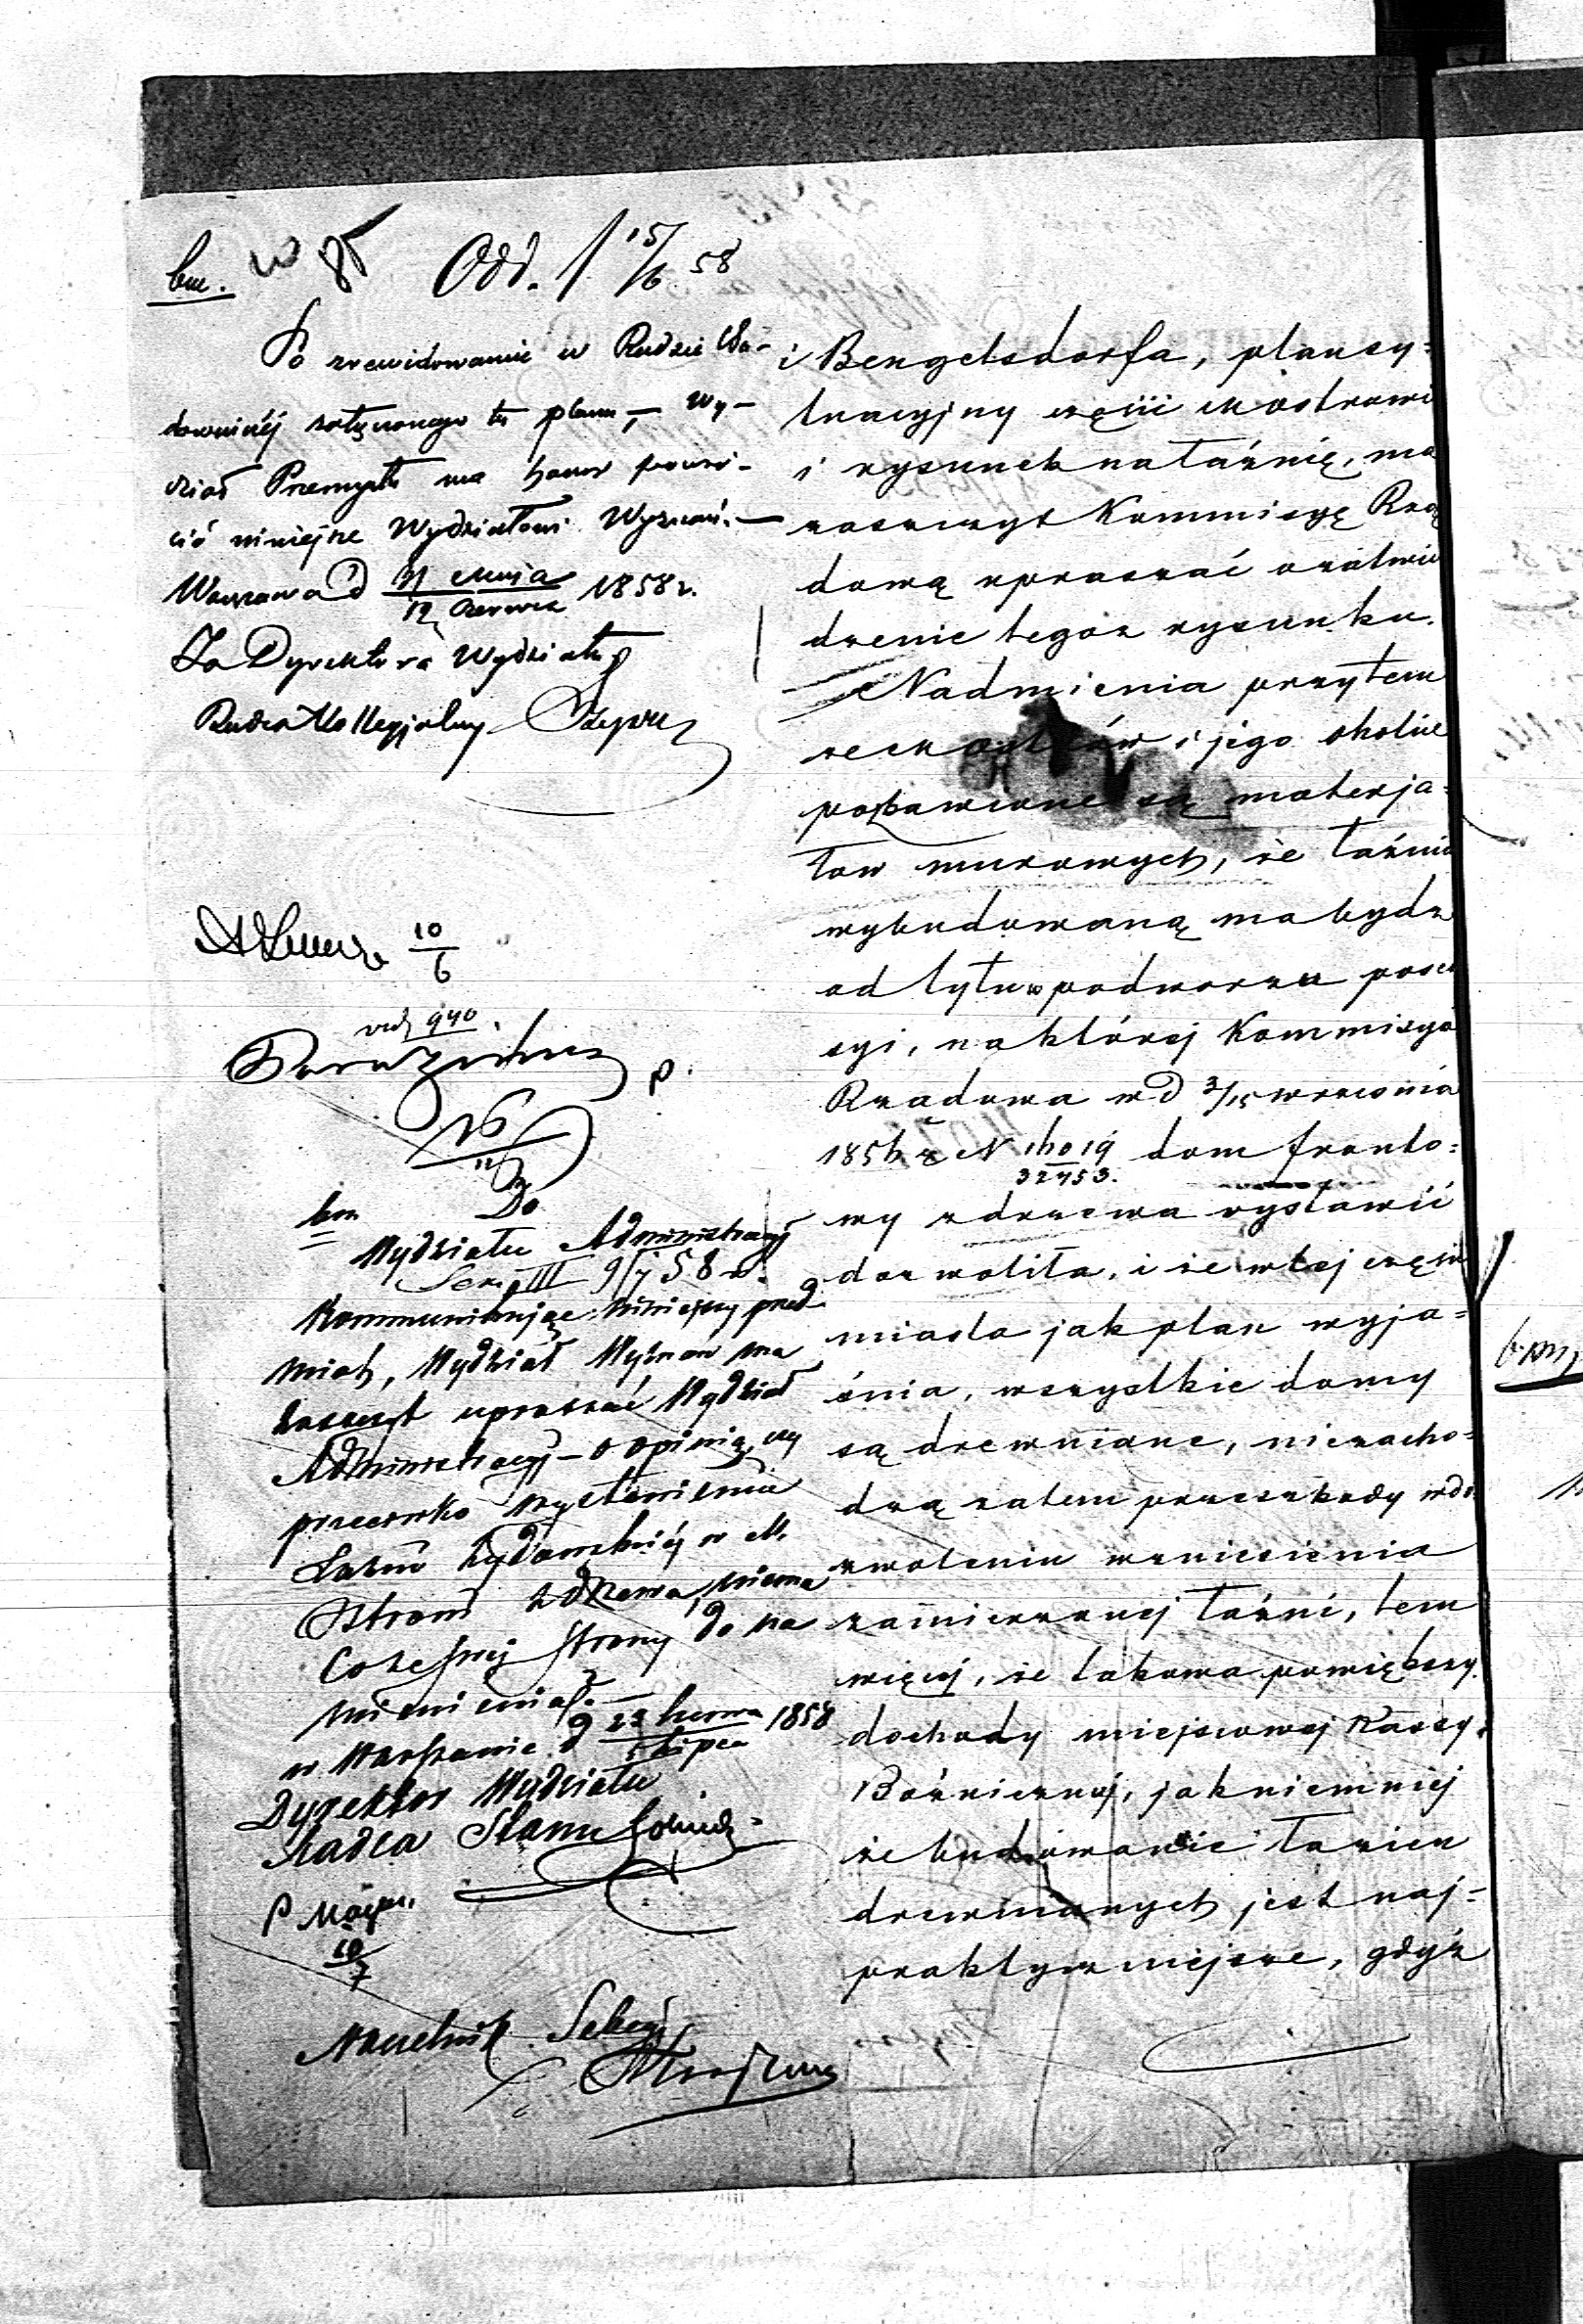 bm. w 85 Odd. 1 15/6 58
Po zrewidowaniu w Radzie Bu-
downiczej załączonego tu planu, — Wy-
dział Przemysłu ma honor powró-
cić niniejsze Wydziałowi Wyznań. —
Warszawa d 31 Maja / 12 Czerwca 1858 r.
Za Dyrektora Wydziału
Radca Kollegjalny
10/6
940
Do
Wydziału Administracyj
Sekc. III 9/7 58 r.
Kommunikując niniejszy przed-
miot, Wydział Wyznań ma
zaszczyt upraszać Wydział
Administracyj — o opinią, czy
przeciwko wystawieniu
Łaźni żydowskiéj w M.
Ostrowi z drzewa, niema
co ze swéj strony do na
mienienia. —
w Warszawie d 23 Czerwca / 5 Lipca 1858
Dyrektor Wydziału
Radca Stanu
10/7
Naczelnik Sekcyi
i Bengelsdorfa, plan sy-
tuacyjny części Mostrowi
i rysunek na łaźnię, ma
zaszczyt Kommisyę Rzą
dową upraszać o zatwie
rdzenie tegoż rysunku.
Nadmienia przytem
że M Ostrów i jego okolice
pozbawione są materja-
łów murowych, że łaźnia
wybudowaną ma bydź
od tyłu w podworzu posse
syi, na któréj Kommisya
Rządowa w d 3/15 Września
1856 r N 16019 / 32453. dom fronto-
wy z drzewa wystawić
dozwoliła, i że w tej części
miasta jak plan wyja-
śnia, wszystkie domy
są drewniane, niezacho-
dzą zatem przeszkody w do
zwoleniu wzniesienia
zamierzonej łaźni, tem
więcej, że takowa powiększy
dochody miejscowej Kassy
Bóżnicznej, jak niemniej
że budowanie łazien
drewnianych jest naj-
praktyczniejsze, gdyż